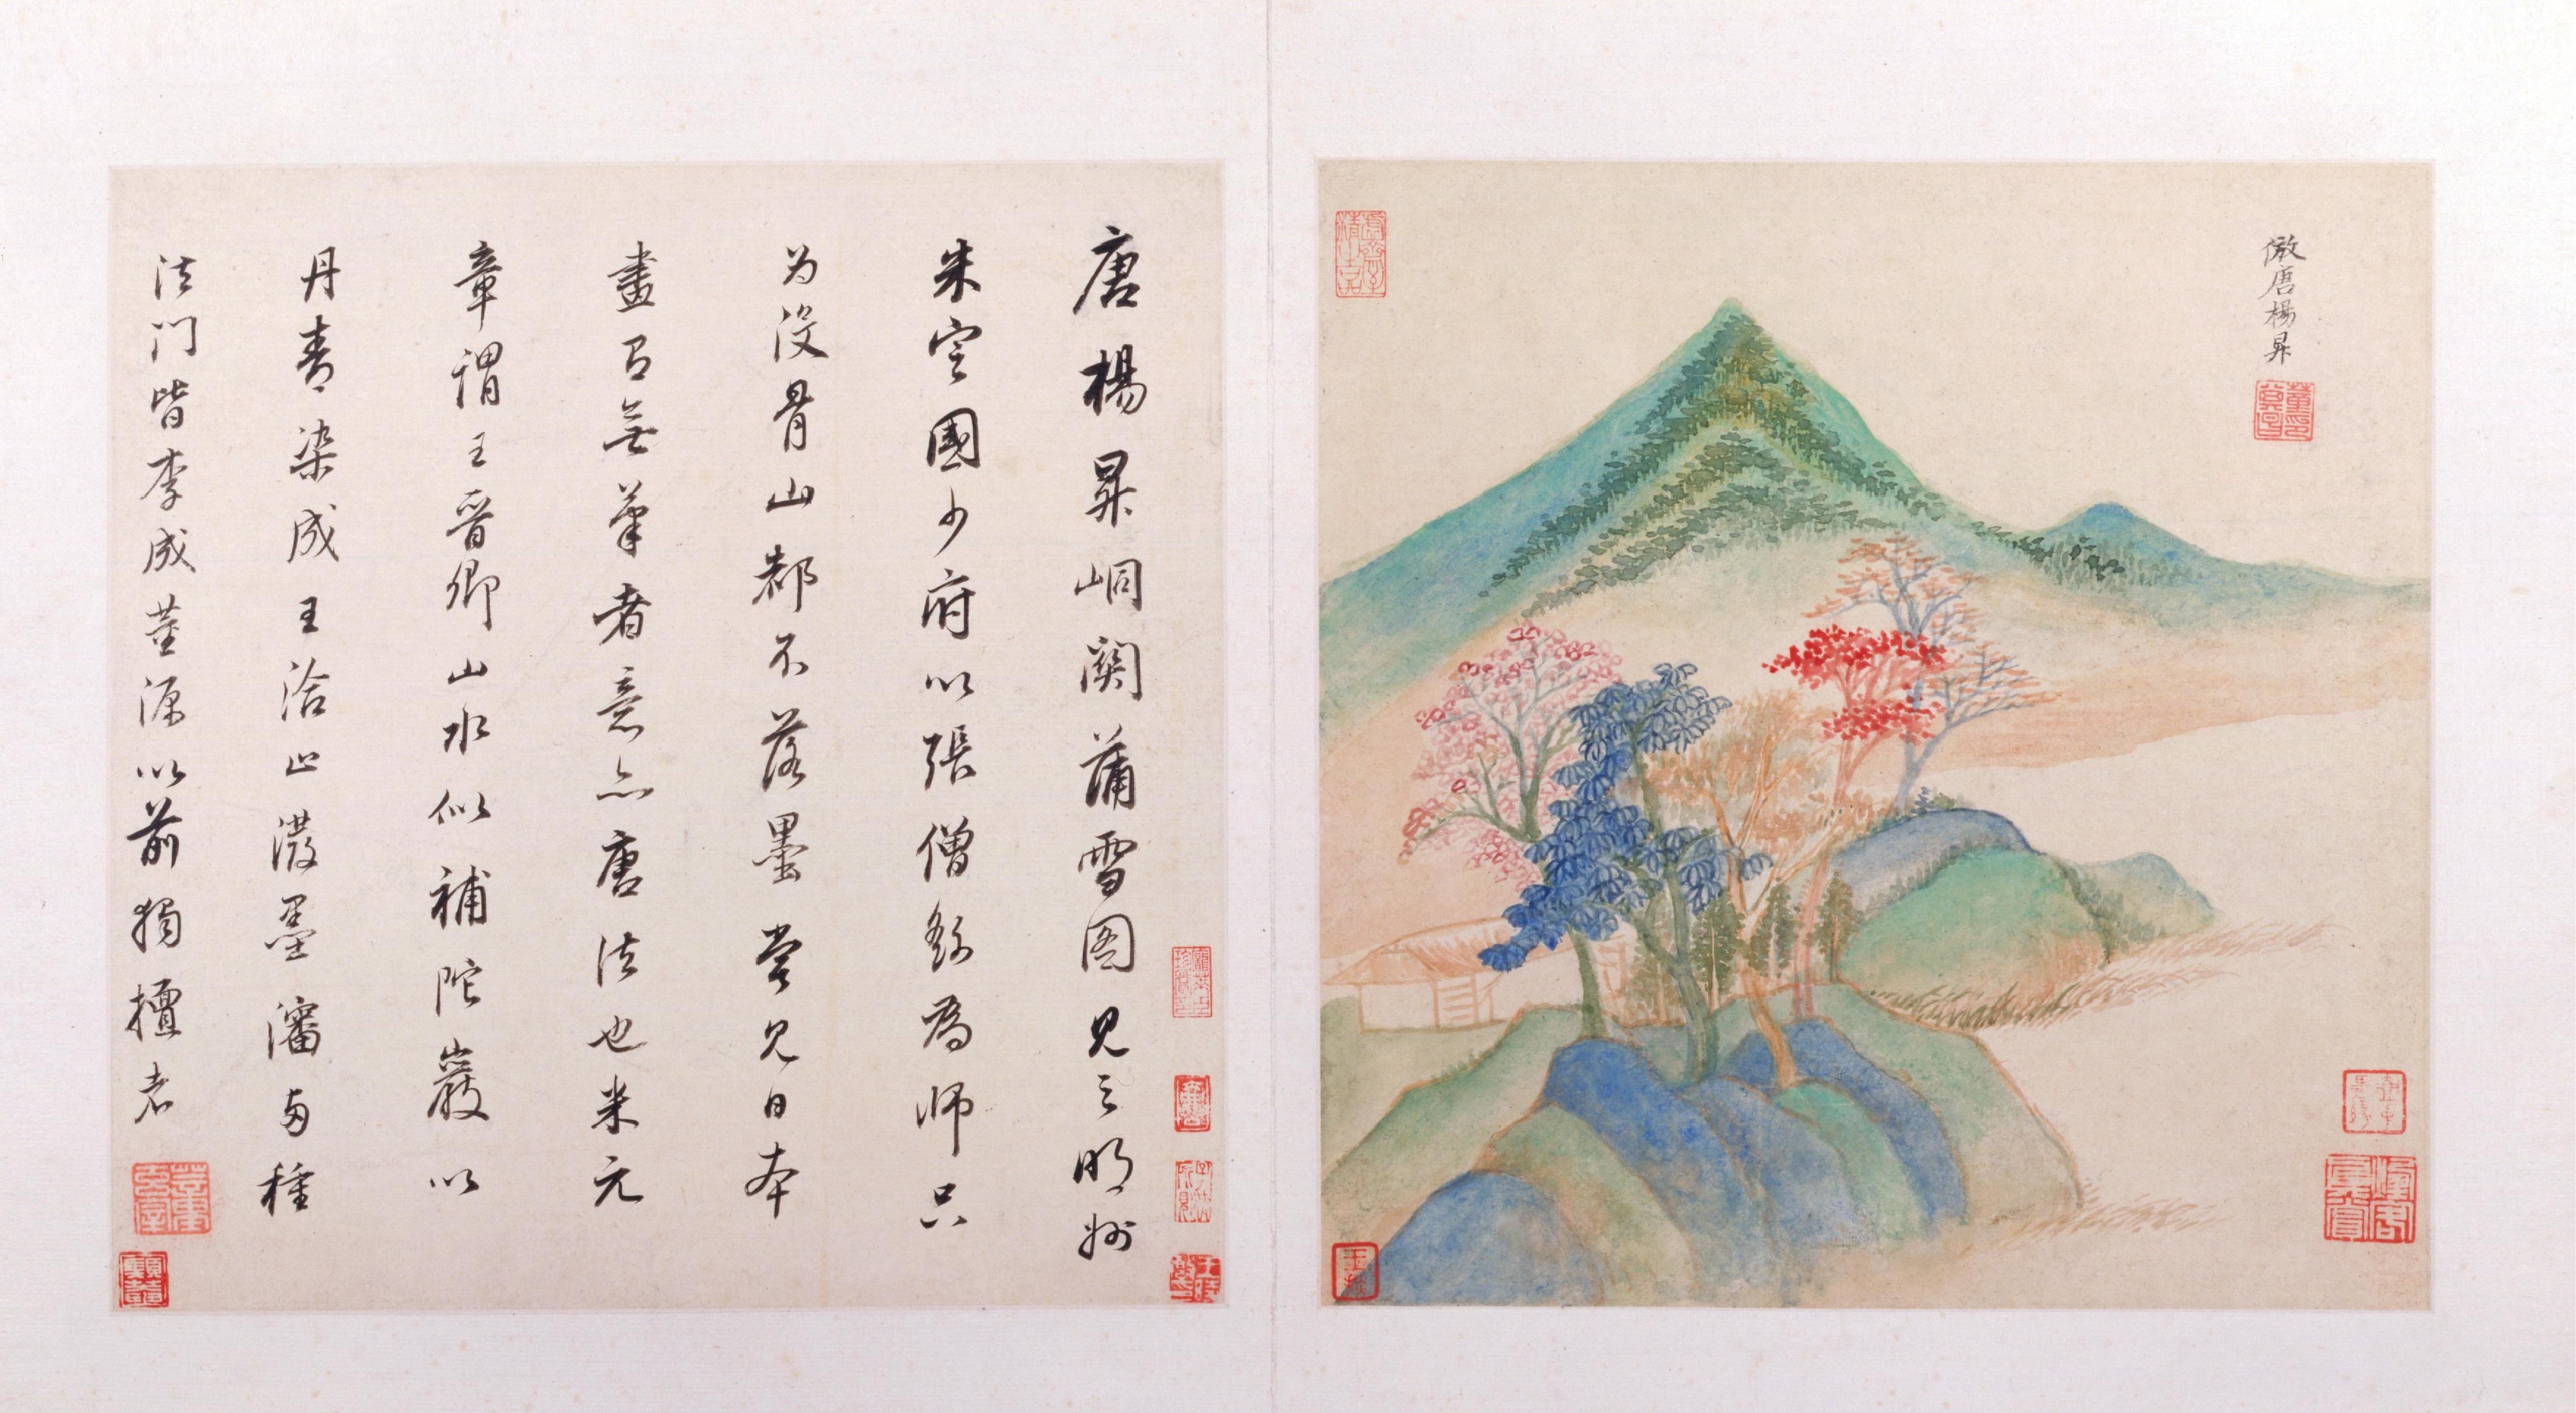 倣唐楊昇
唐楊昇峒關蒲雪图見之明州
朱定國少府以張僧繇為师只
为没骨山都不落墨嘗見日本
畫有無筆者意亦唐法也米元
章謂王晉卿山水似補陀巖以
丹青染成王洽止潑墨瀋與種
法门皆李成董源以前獨擅者